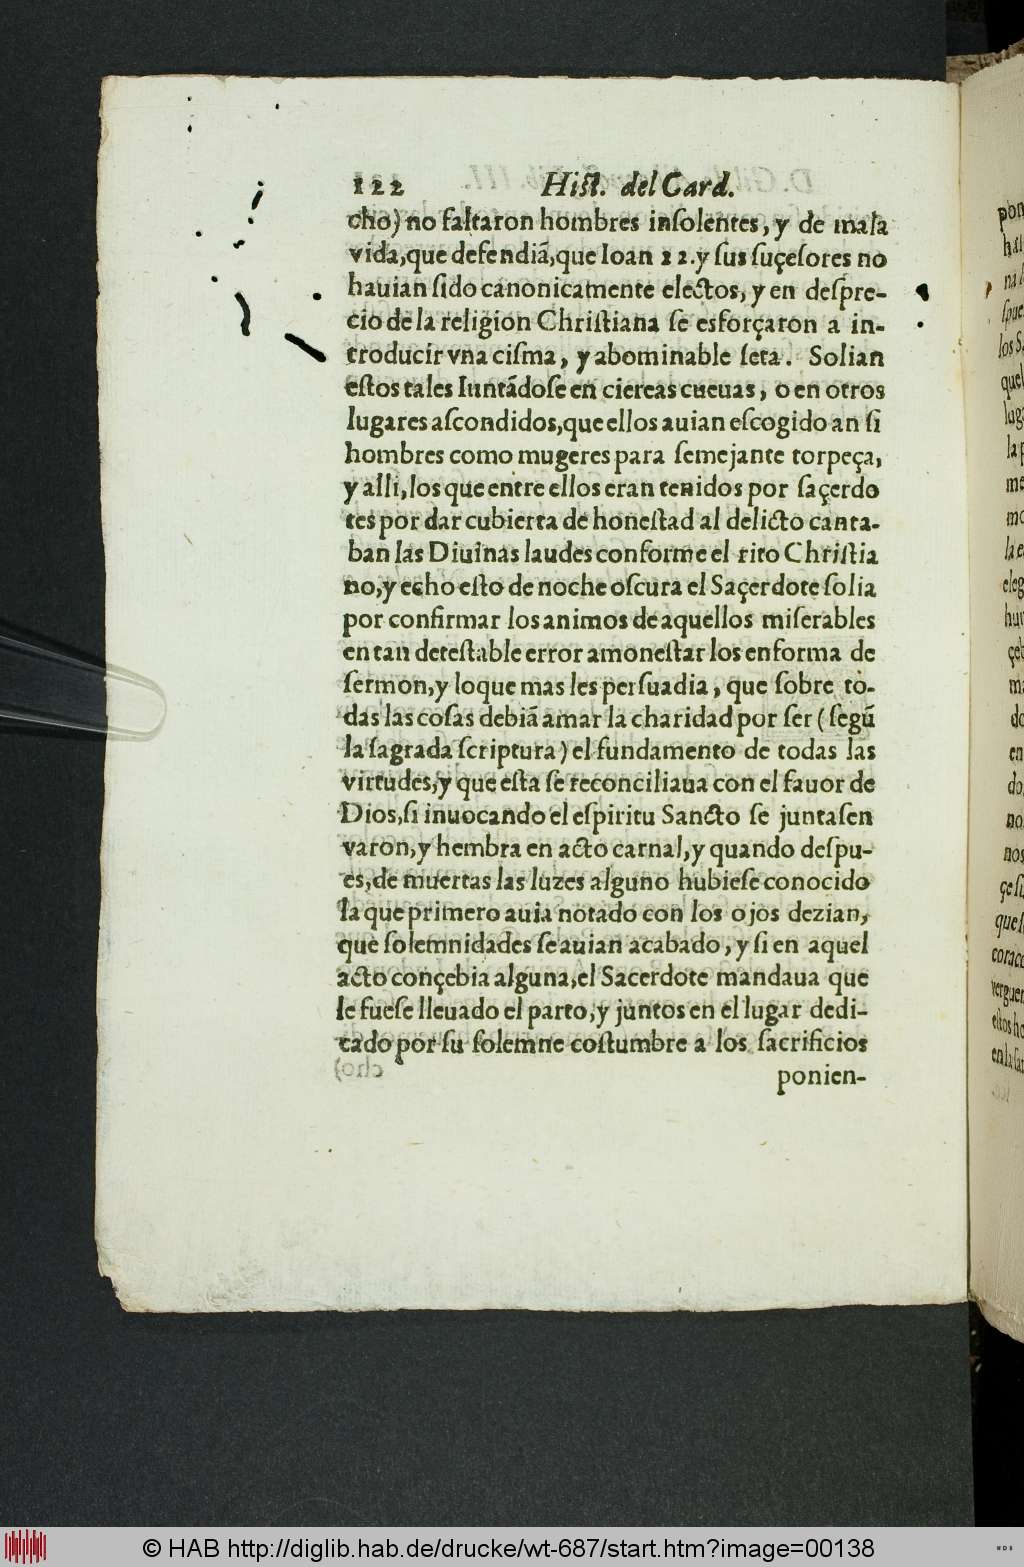 122 Hist. del Card.
cho) no faltaron hombres insolentes, y de mala
vida, que defendiã, que Ioan 22. y sus suçesores no
hauian sido canonicamente electos, y en despre-
cio de la religion Christiana se esforçaron a in-
troducir vna cisma, y abominable seta. Solian
estos tales Iuntãdose en ciertas cueuas, o en otros
lugares ascondidos, que ellos auian escogido an si
hombres como mugeres para semejante torpeça,
y alli, los que entre ellos eran tenidos por saçerdo
tes por dar cubierta de honestad al delicto canta-
ban las Diuinas laudes conforme el rito Christia
no, y echo esto de noche oscura el Saçerdote solia
por confirmar los animos de aquellos miserables
en tan detestable error amonestar los en forma de
sermon, y lo que mas les persuadia, que sobre to-
das las cosas debiã amar la charidad por ser (segũ
la sagrada scriptura) el fundamento de todas las
virtudes, y que esta se reconciliaua con el fauor de
Dios, si inuocando el espiritu Sancto se juntasen
varon, y hembra en acto carnal, y quando despu-
es, de muertas las luzes alguno hubiese conocido
la que primero auia notado con los ojos dezian,
que solemnidades se auian acabado, y si en aquel
acto conçebia alguna, el Sacerdote mandaua que
le fuese lleuado el parto, y juntos en el lugar dedi-
cado por su solemne costumbre a los sacrificios
ponien-
© HAB http://diglib.hab.de/drucke/wt-687/start.htm?image=00138